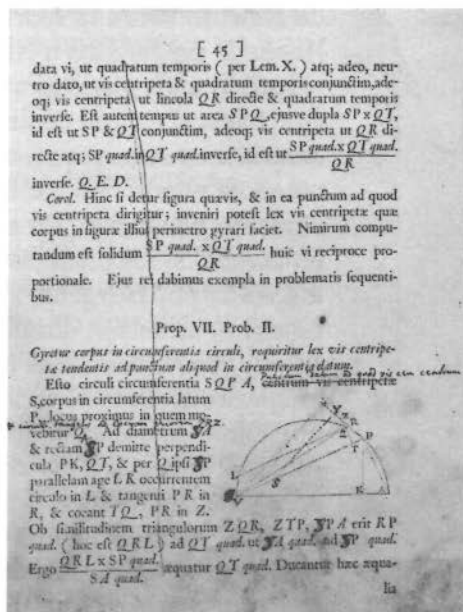 [ 45 ]
data vi, ut quadratum temporis ( per Lem. X. ) atq; adeo, neu-
tro dato, ut vis centripeta & quadratum temporis conjunctim, ade-
oq; vis centripeta ut lineola QR directe & quadratum temporis
inverse. Est autem tempus ut area SPQ, ejusve dupla SP x QT,
id est ut SP & QT conjunctim, adeoq; vis centripeta ut QR di-
recte atq; SP quad. in QT quad. inverse, id est ut SP quad. x QT quad.
QR
inverse. Q. E. D.
Corol. Hinc si detur figura quævis, & in ea punctum ad quod
vis centripeta dirigitur; inveniri potest lex vis centripetæ quæ
corpus in figuræ illius perimetro gyrari faciet. Nimirum compu-
tandum est solidum SP quad. x QT quad. huic vi reciproce pro-
QR
portionale. Ejus rei dabimus exempla in problematis sequenti-
bus.
Prop. VII. Prob. II.
Gyretur corpus in circumferentia circuli, requiritur lex vis centripe-
tæ tendentis ad punctum aliquod in circumferentia datum.
Esto circuli circumferentia SQPA, centrum vis centripetæ
S, corpus in circumferentia latum
P, locus proximus in quem mo-
vebitur Q. Ad diametrum A
& rectam P demitte perpendi-
cula PK, QT, & per Q ipsi P
parallelam age LR occurrentem
circulo in L & tangenti PR in
R, & coeant TQ, PR in Z.
Ob similitudinem triangulorum ZQR, ZTP, PA erit RP
quad. ( hoc est QRL ) ad QT quad. ut A quad. ad P quad.
Ergo QRL x SP quad. æquatur QT quad. Ducantur hæc æqua-
SA quad.
lia